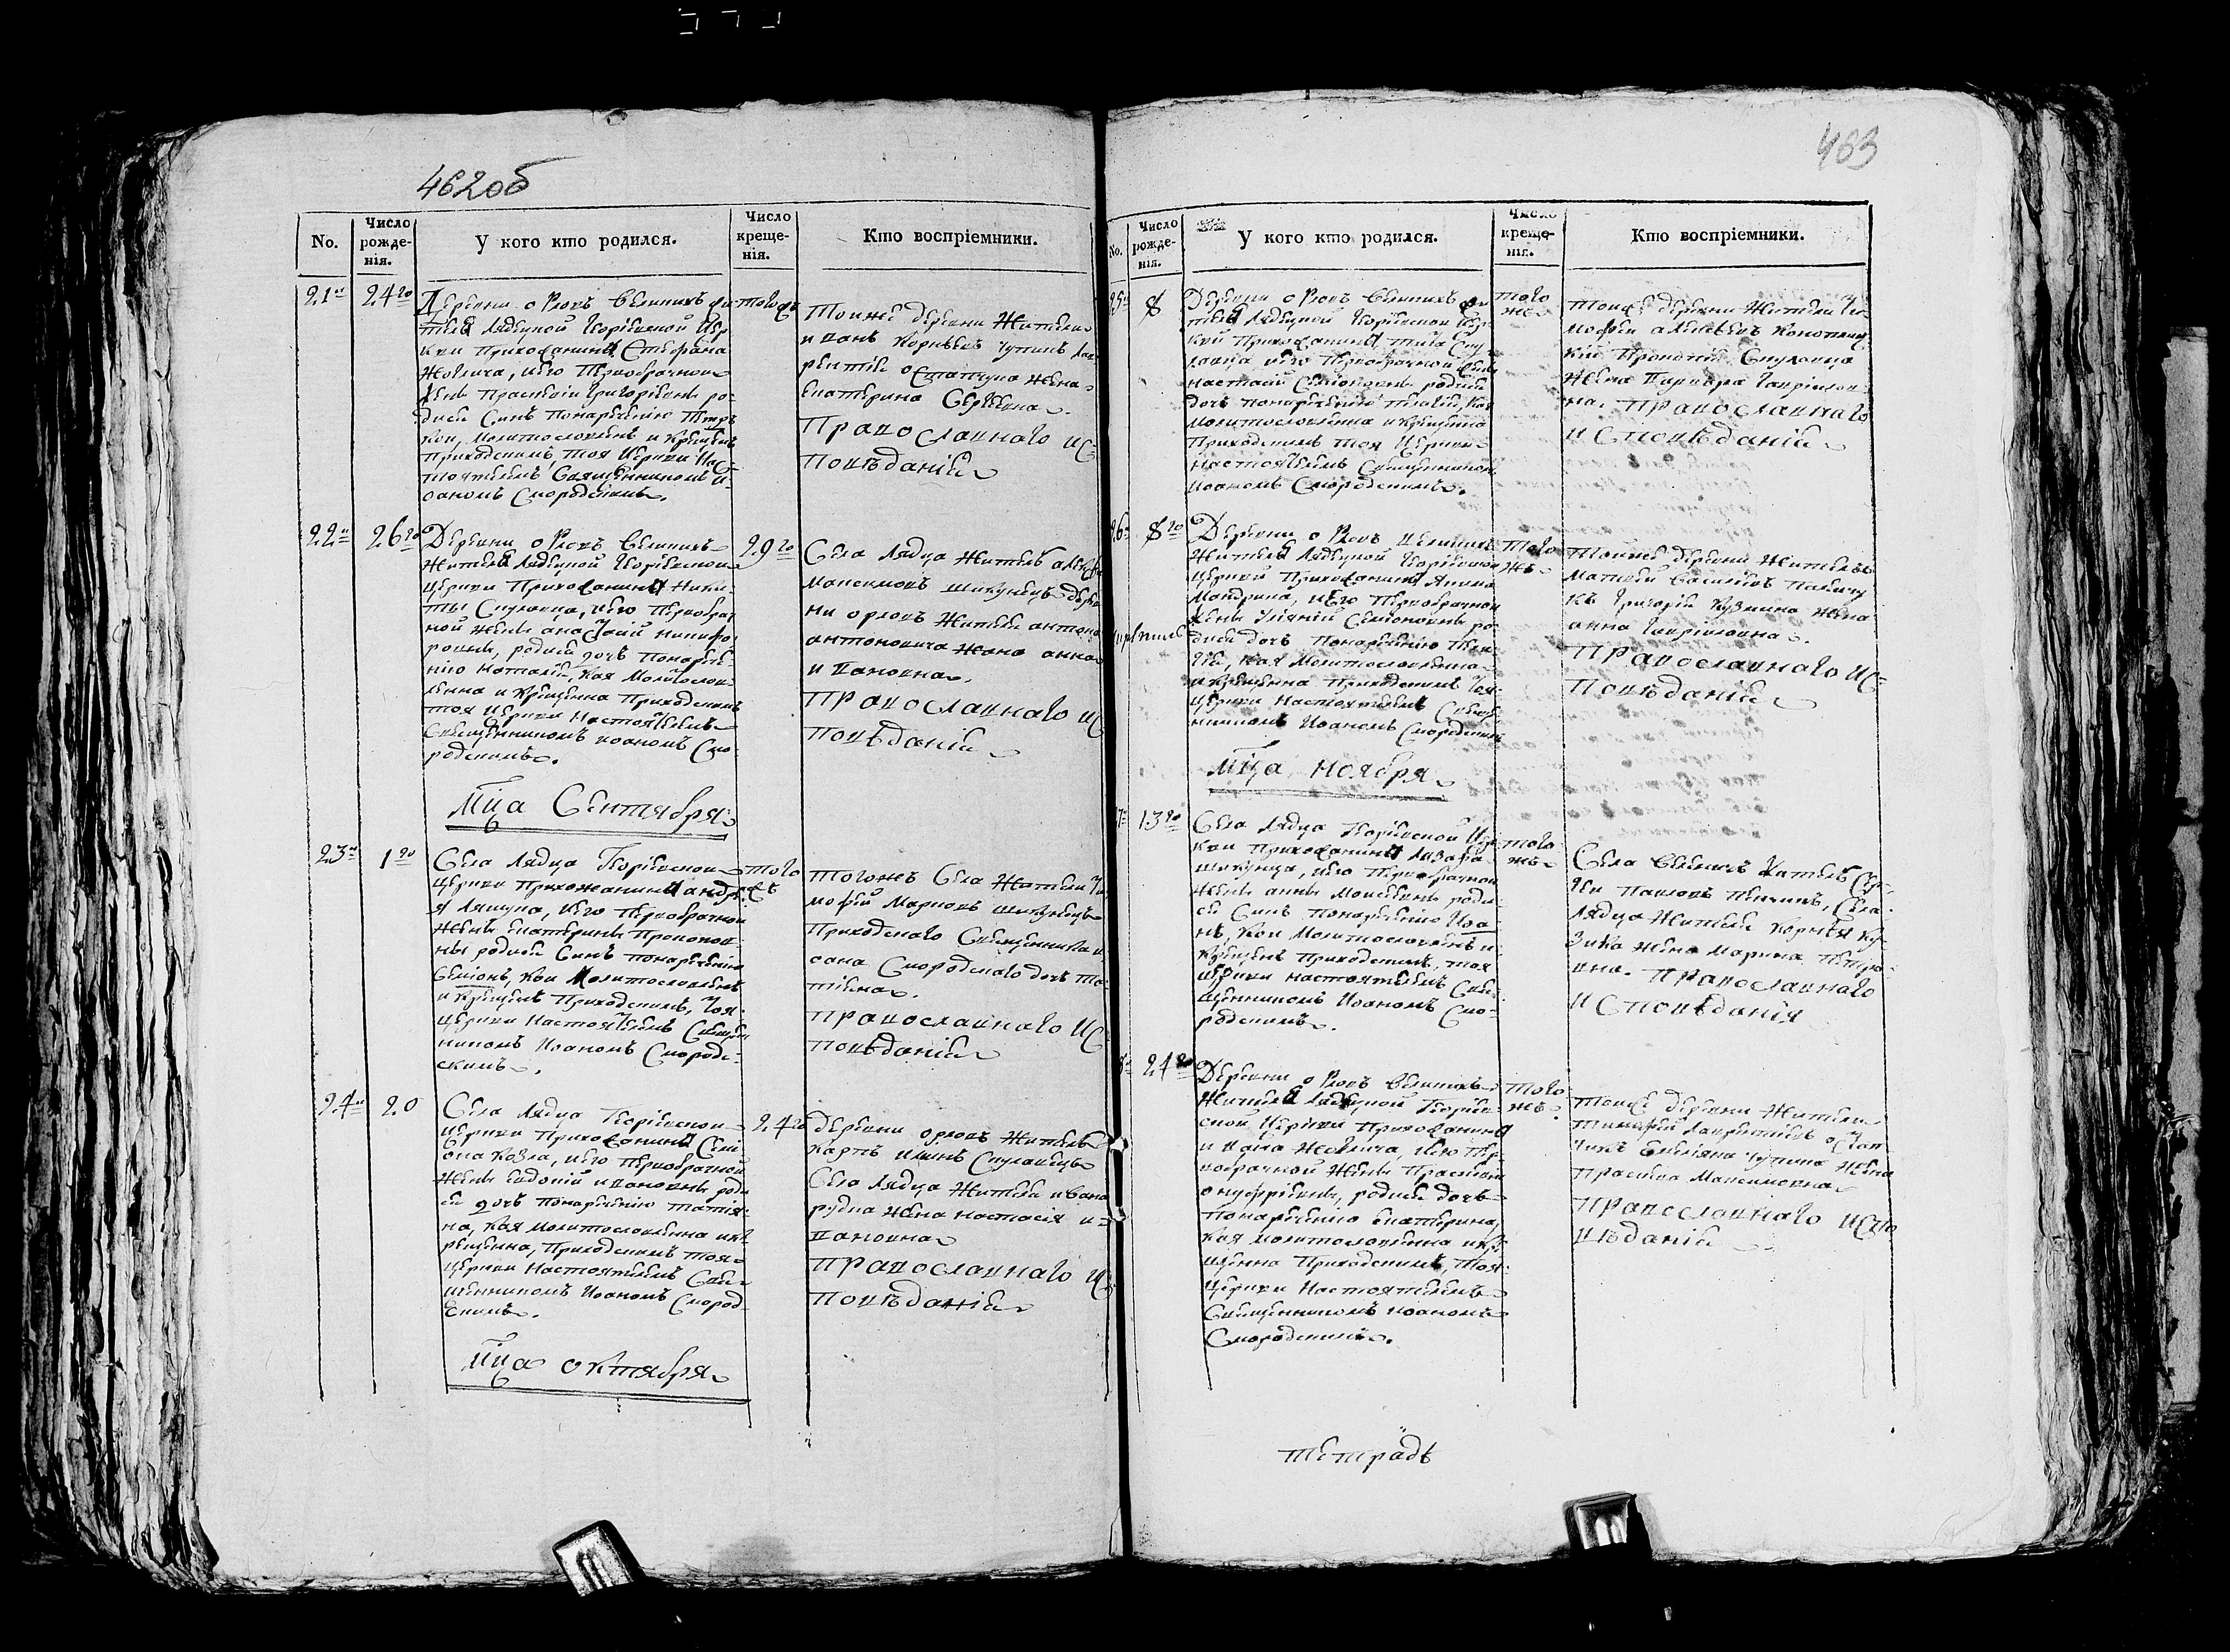 462об
No.
Число рожде- нія.
У кого кто родился.
Число креще- нія.
Кто воспріемники.
21
24го
Деревни Орловъ Великихъ жи-
теля Лядецкой Георгіевской Цер
кви Прихожанина Стефана
Жовнича, его Первобрачной
жены Праскевіи Григоріевны ро-
дися Сынъ Понареченію Петръ
кои, Молитвословленъ и Крещенъ
Приходскимъ Тоя Церкви Нас-
тоятелемъ Священникомъ И-
оаномъ Смородскимъ.
тогожъ
Тоижъ деревни Жители
Корнѣевъ Чупинъ Лав
рентія Остапчука жена
Екатерина Сергѣевна.
Православнаго Ис-
повѣданія
22
26го
Деревни Орловъ Великихъ
Жителя Лядецкой Георгіевской
Церкви Прихожанина Ники-
ты Спуловца, его Первобрач
ной жены Анастасіи Никифо-
ровны, родися дочь Понарече-
нію Наталія, кая Молитвослов-
ленна и Крещенна Приходскимъ
тоя Церкви Настоятелемъ
Священникомъ Иоаномъ Смо
родскимъ.
29го
Села Лядца Житель
Максимовъ Шикунецъ дерев
ни Орловъ Жителя Антона
Антоновича Жена Анна
Ивановна.
Православнаго Ис
повѣданія
Мца Сентября
23
1го
Села Лядца Георгіевской
Церкви Прихожанина Андре
я Ляшука, его Первобрачной
жены Екатерины Прокопов
ны родися Сынъ понареченію
Семіонъ, кои Молитвословленъ
и Крещенъ Приходскимъ, тоя
Церкви Настоятелемъ Священ
никомъ Иоаномъ Смород-
скимъ.
того жъ
Тогожъ Села Жители Ти
мофій Марковъ Шикунецъ
Приходскаго Священника И
оана Смородскаго дочь Та-
тіяна.
Православнаго Ис
повѣданія
24
20
Села Лядца Георгіевской
Церкви Прихожанина Семі
она Козла, его Первобрачной
жены Евдокіи Ивановны роди
ся дочь понареченію Татія-
на, кая Молитвословленна и к
рещенна, Приходскимъ тоя
Церкви Настоятелемъ Свя-
щенникомъ Иоаномъ Смород-
скимъ.
24го
деревни Орловъ Житель
Карпъ Спуловецъ
Села Лядца Жителя Ивана
Рудка жена Настасія И-
вановна
Православнаго Ис
повѣданія
Мца Октября
463
No.
Число рожде- нія.
У кого кто родился.
Число креще- нія.
Кто воспріемники.
25
8
Деревни Орловъ Великихъ жи
теля Лядецкой Георгіевской Цер-
кви Прихожанина Тита Спу
ловца его Первобрачной жены
Настасіи Семіоновны родися
дочь понареченію Пелагія, кая
молитвословленна и крещенна
Приходскимъ тоя Церкви
Настоятелемъ Священникомъ
Иоаномъ Смородскимъ.
того же
Тоижъ деревни Жители Ти
мофій Алексѣевъ
Прокопія Спуловца
Жена Варвара Гавріилов-
на. Православнаго
Исповѣданія
26
8го
Деревни Орловъ Великихъ
Жителя Лядецкой Георгіевской
Церкви Прихожанина Якима
его Первобрачной
жены Уліяніи Семіоновны ро-
дися дочь Понареченію
кая Молитвословленна
и Крещенна Приходскимъ Тоя
Церкви Настоятелемъ Священ
никомъ Иоаномъ Смородскимъ
того жъ
Тоижъ деревни Житель
Матвѣй Василіевъ
Григорія Кузмина жена
Анна Гавріиловна.
Православнаго Ис-
повѣданія
Мца Ноября
13го
Села Лядца Георгіевской Цер
кви Прихожанина Лазара
Шикунца, его Первобрачной
жены Анны Моисеевны роди-
ся Сынъ понареченію Иоа
нъ, кои Молитвословленъ и
Крещенъ Приходскимъ, тоя
Церкви Настоятелемъ Свя-
щенникомъ Иоаномъ Смо-
родскимъ.
того жъ
Села Житель Сер-
гѣй Павловъ Села
Лядца Жителя Корнѣя Ку-
зика жена Марина Петро-
вна. Православнаго
Исповѣданія
24го
Деревни Орловъ Великихъ
Жителя Лядецкой Георгіев-
ской Церкви Прихожанина
Ивана Жовнича, его Пер-
вобрачной жены Праскевіи
Онуфріевны, родися дочь
Понареченію Екатерина,
кая молитвословленна и кре
щенна Приходскимъ, Тоя
Церкви Настоятелемъ
Священникомъ Иоаномъ
Смородскимъ.
того жъ
Тоижъ деревни Жители
Тимофій Лаврентіевъ Остап
чикъ Емиліяна Чупина жена
Праскева Максимовна
Православнаго Испо
вѣданія
Тетрадь